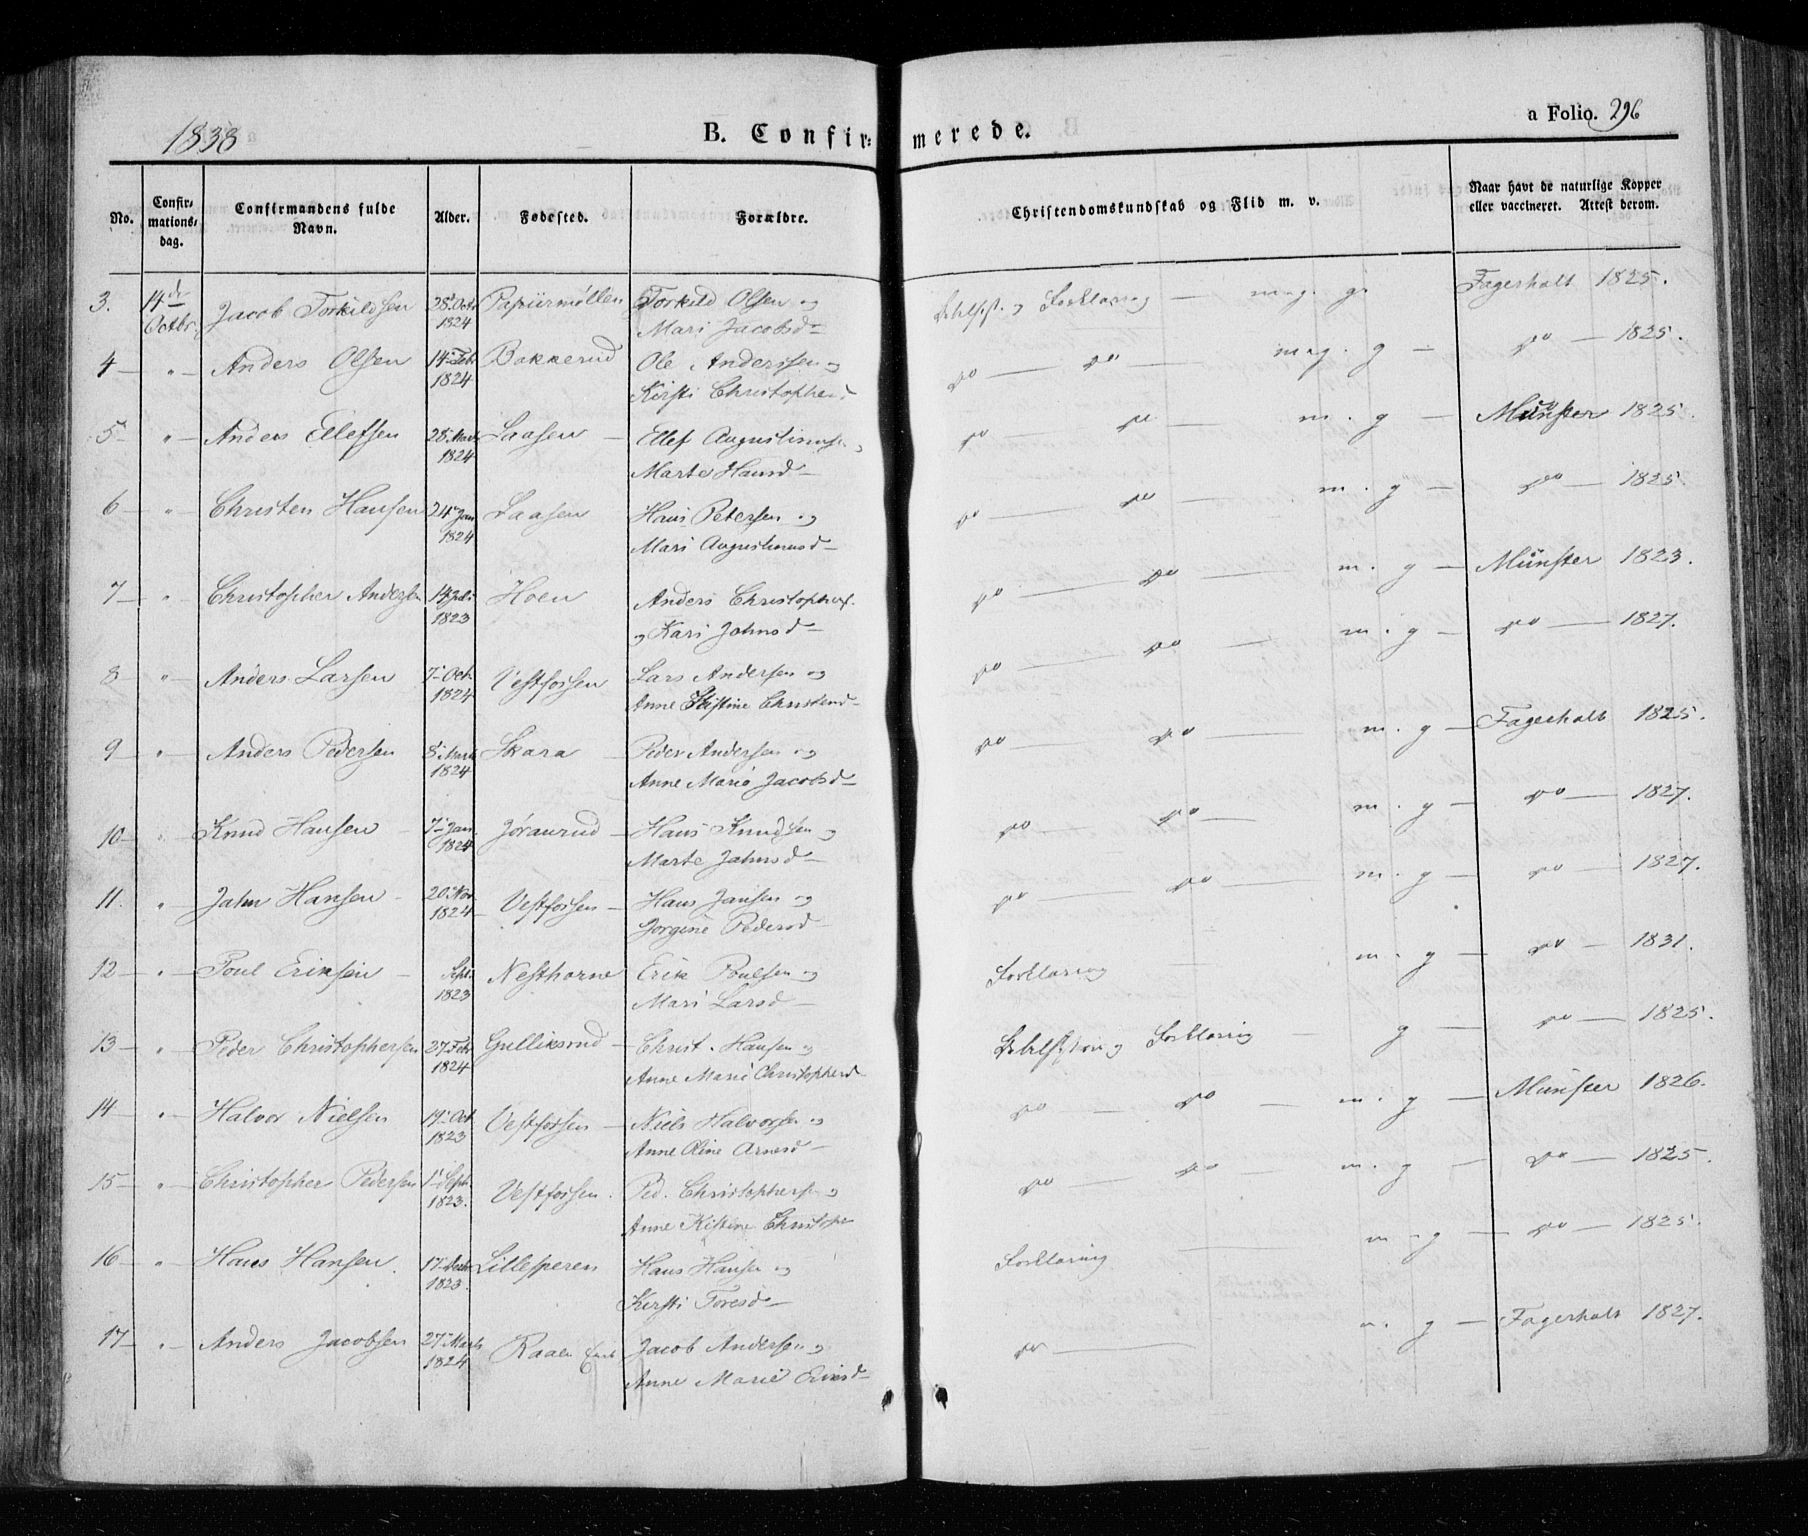 1838
B. Confirmerede.
a Folio. 296
No.
Confirmationsdag.
Confirmandens fulde Navn.
Alder.
Fødested.
Forældre.
Christendomskundskab og Flid m. v.
Naar havt de naturlige Kopper eller vaccineret. Attest derom.
3. 14de Octbr. Jacob Torkildsen 28 Octr 1824 Papiirmøllen Torkild Olsen og Forklaring — mag. g. Fagerholt 1825.
Mari Jacobsd—
4 — " — Anders Olsen 14 Febr 1824 Bakkerud Ole Anderssen og do — do — mag. g — do — 1825.
Kirsti Christophersd
5 — " — Anders Ellefsen 28 1824 Laasen — Ellef Augustinus do — do — m. g — Münster 1825.
Marte Hansd—
6 — " — Christen Hansen 24 Jan 1824 Laasen Hans Petersen og do — do — m. g — do — 1825
Mari Augustinusd—
7 — " Christopher Andersen 14 1823 Hoen Anders Christophers. do — do — m. g — Münster 1823.
og Kari Johnsd—
8 " — Anders Larsen 7 Oct. 1824 Vestfossen Lars Andersen og do — do — m. g — do — 1827.
Anne Kistine Christensd—
9 " — Anders Pedersen 8 Marts 1824 Skara — Peder Andersen og do — do — m. g — Fagerholt 1825.
Anne Marie Jacobsd—
10 " — Knud Hansen — 7 Jan. 1824 Jøranrud — Hans Knudsen og do — do — m. g — do — 1827.
Marte Johnsd—
11. " John Hansen — 20 Nov 1824 Vestfossen — Hans Jansen og do — do — m. g — do — 1827.
Jorgine Pedersd—
12 — " — Poul Eriksen — Sept 1823 Nesthorne Erik Poulsen og Forklaring — m. g — do — 1831.
Mari Larsd—
13 — " Peder Christophersen 27 Febr 1824 Gulliksrud — Christ. Hansen og Forklaring — g — do — 1825.
Anne Marie Christophersd—
14 " — Halvor Nielsen 19 Oct 1823 Vestfossen — Niels Halvorsen og do — do — m. g — Münster 1826.
Anne Oline Arnesd—
15 — " Christopher Pedersen 1 Sept. 1823. Vestfossen. Ped. Christophers. og do — do — m. g — do — 1825.
Anne Kistine Christoph
16 — " — Hans Hansen. 17 Decbr 1823. Lillesperen Hans Hansen og Forklaring — m. g — do — 1825.
Kirsti Toresd—
17 — " — Anders Jacobsen 27 Marts 1824 Raaen Jacob Andersen og do — m. g — Fagerholt 1827.
Anne Marie Eriksd—